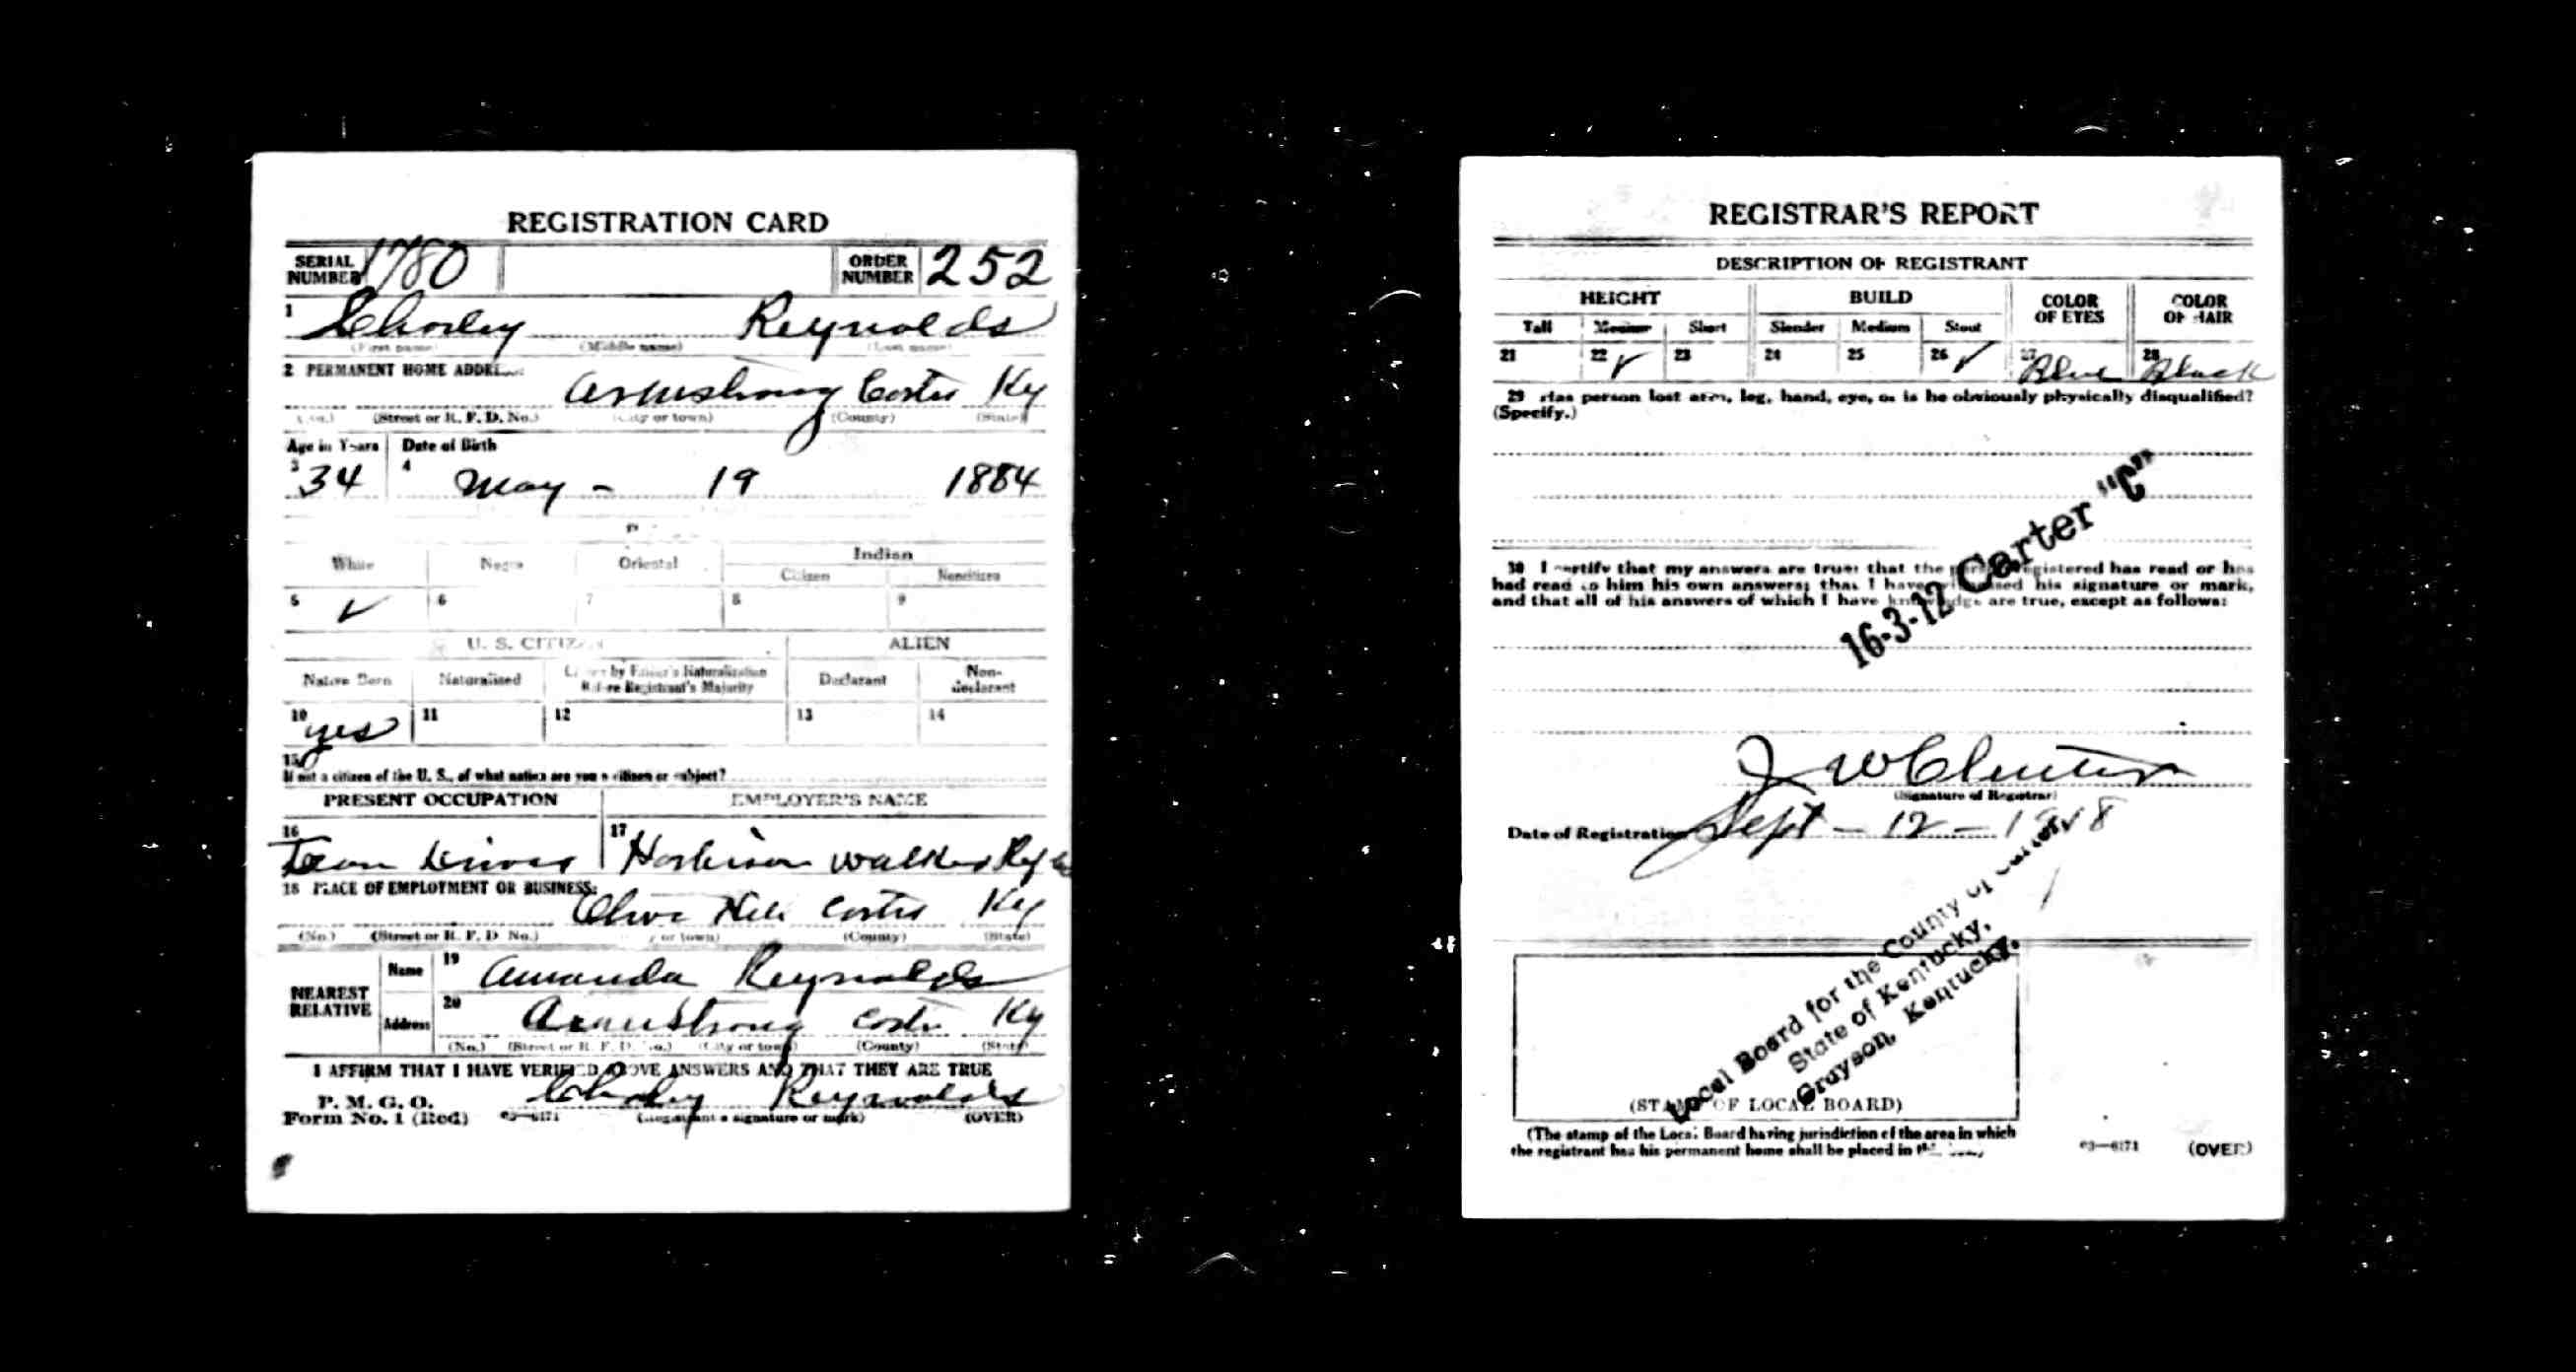 REGISTRATION CARD
SERIAL NUMBER 1780 ORDER NUMBER 252
1 Charley Reynolds
(First name) (Middle name) (Last name)
2 PERMANENT HOME ADDRESS:
Armstrong Carter Ky
(No.) (Street or R. F. D. No.) (City or town) (County) (State)
Age in Years Date of Birth
3 34 4 May - 19 1884
White Negro Oriental Indian
Citizen Noncitizen
5 ✓ 6 7 8 9
U. S. CITIZEN ALIEN
Native Born Naturalized Citizen by Father's Naturalization Before Registrant's Majority Declarant Non-declarant
10 yes 11 12 13 14
15
If not a citizen of the U. S., of what nation are you a citizen or subject?
PRESENT OCCUPATION EMPLOYER'S NAME
16 Team Driver 17 Harbison Walker Ref Co
18 PLACE OF EMPLOYMENT OR BUSINESS:
Olive Hill Carter Ky
(No.) (Street or R. F. D. No.) (City or town) (County) (State)
NEAREST RELATIVE
Name 19 Amanda Reynolds
Address 20 Armstrong Carter Ky
(No.) (Street or R. F. D. No.) (City or town) (County) (State)
I AFFIRM THAT I HAVE VERIFIED ABOVE ANSWERS AND THAT THEY ARE TRUE
P. M. G. O.
Form No. 1 (Red) 03—6171 Charley Reynolds
(Registrant's signature or mark) (OVER)
REGISTRAR'S REPORT
DESCRIPTION OF REGISTRANT
HEIGHT BUILD COLOR OF EYES COLOR OF HAIR
Tall Medium Short Slender Medium Stout
21 22 ✓ 23 24 25 26 ✓ 27 Blue 28 Black
29 Has person lost arm, leg, hand, eye, or is he obviously physically disqualified?
(Specify.)
16-3-12 Carter "C"
30 I certify that my answers are true; that the person registered has read or has
had read to him his own answers; that I have witnessed his signature or mark,
and that all of his answers of which I have knowledge are true, except as follows:
(Signature of Registrar)
Date of Registration Sept - 12 - 1918
Local Board for the County of Carter,
State of Kentucky,
Grayson, Kentucky.
(STAMP OF LOCAL BOARD)
(The stamp of the Local Board having jurisdiction of the area in which
the registrant has his permanent home shall be placed in this
03—6171 (OVER)